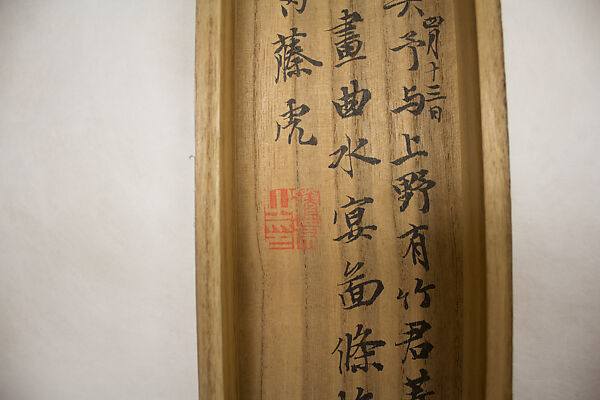 四月十三日
予与上野有竹君
畫曲水宴圖條
藤虎